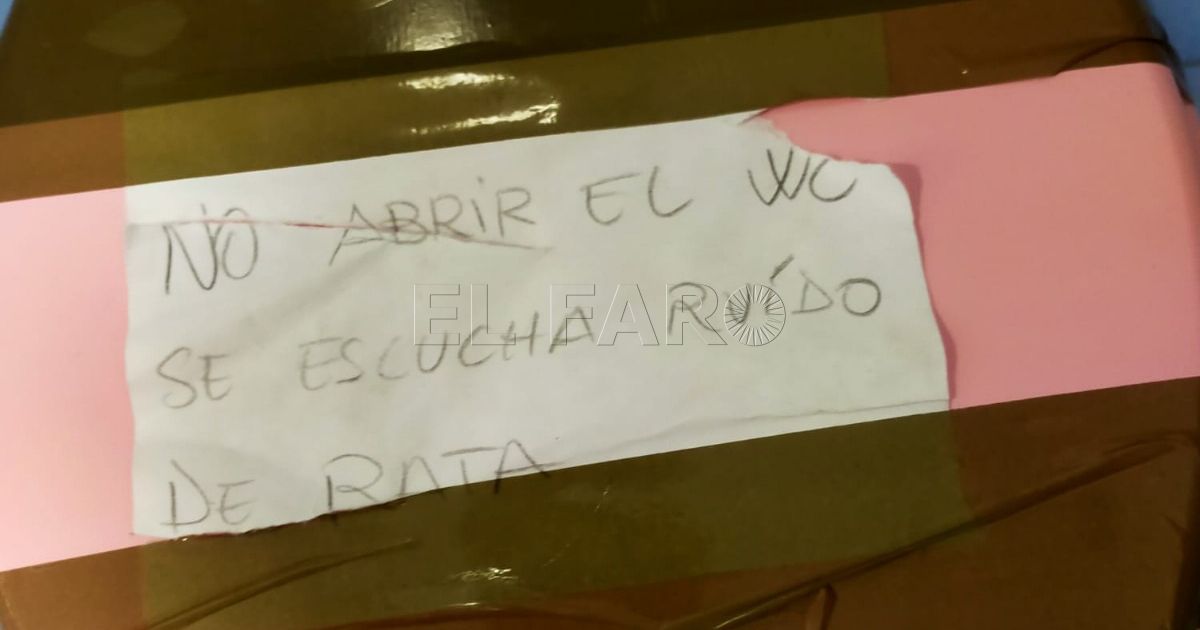 NO ABRIR EL WC
SE ESCUCHA RUÍDO
DE RATA
EL FARO